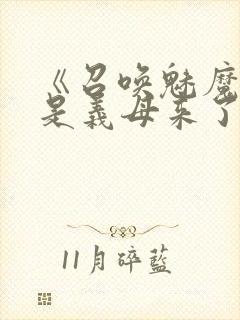 《召唤魅魔
是義母来了
11月碎藍